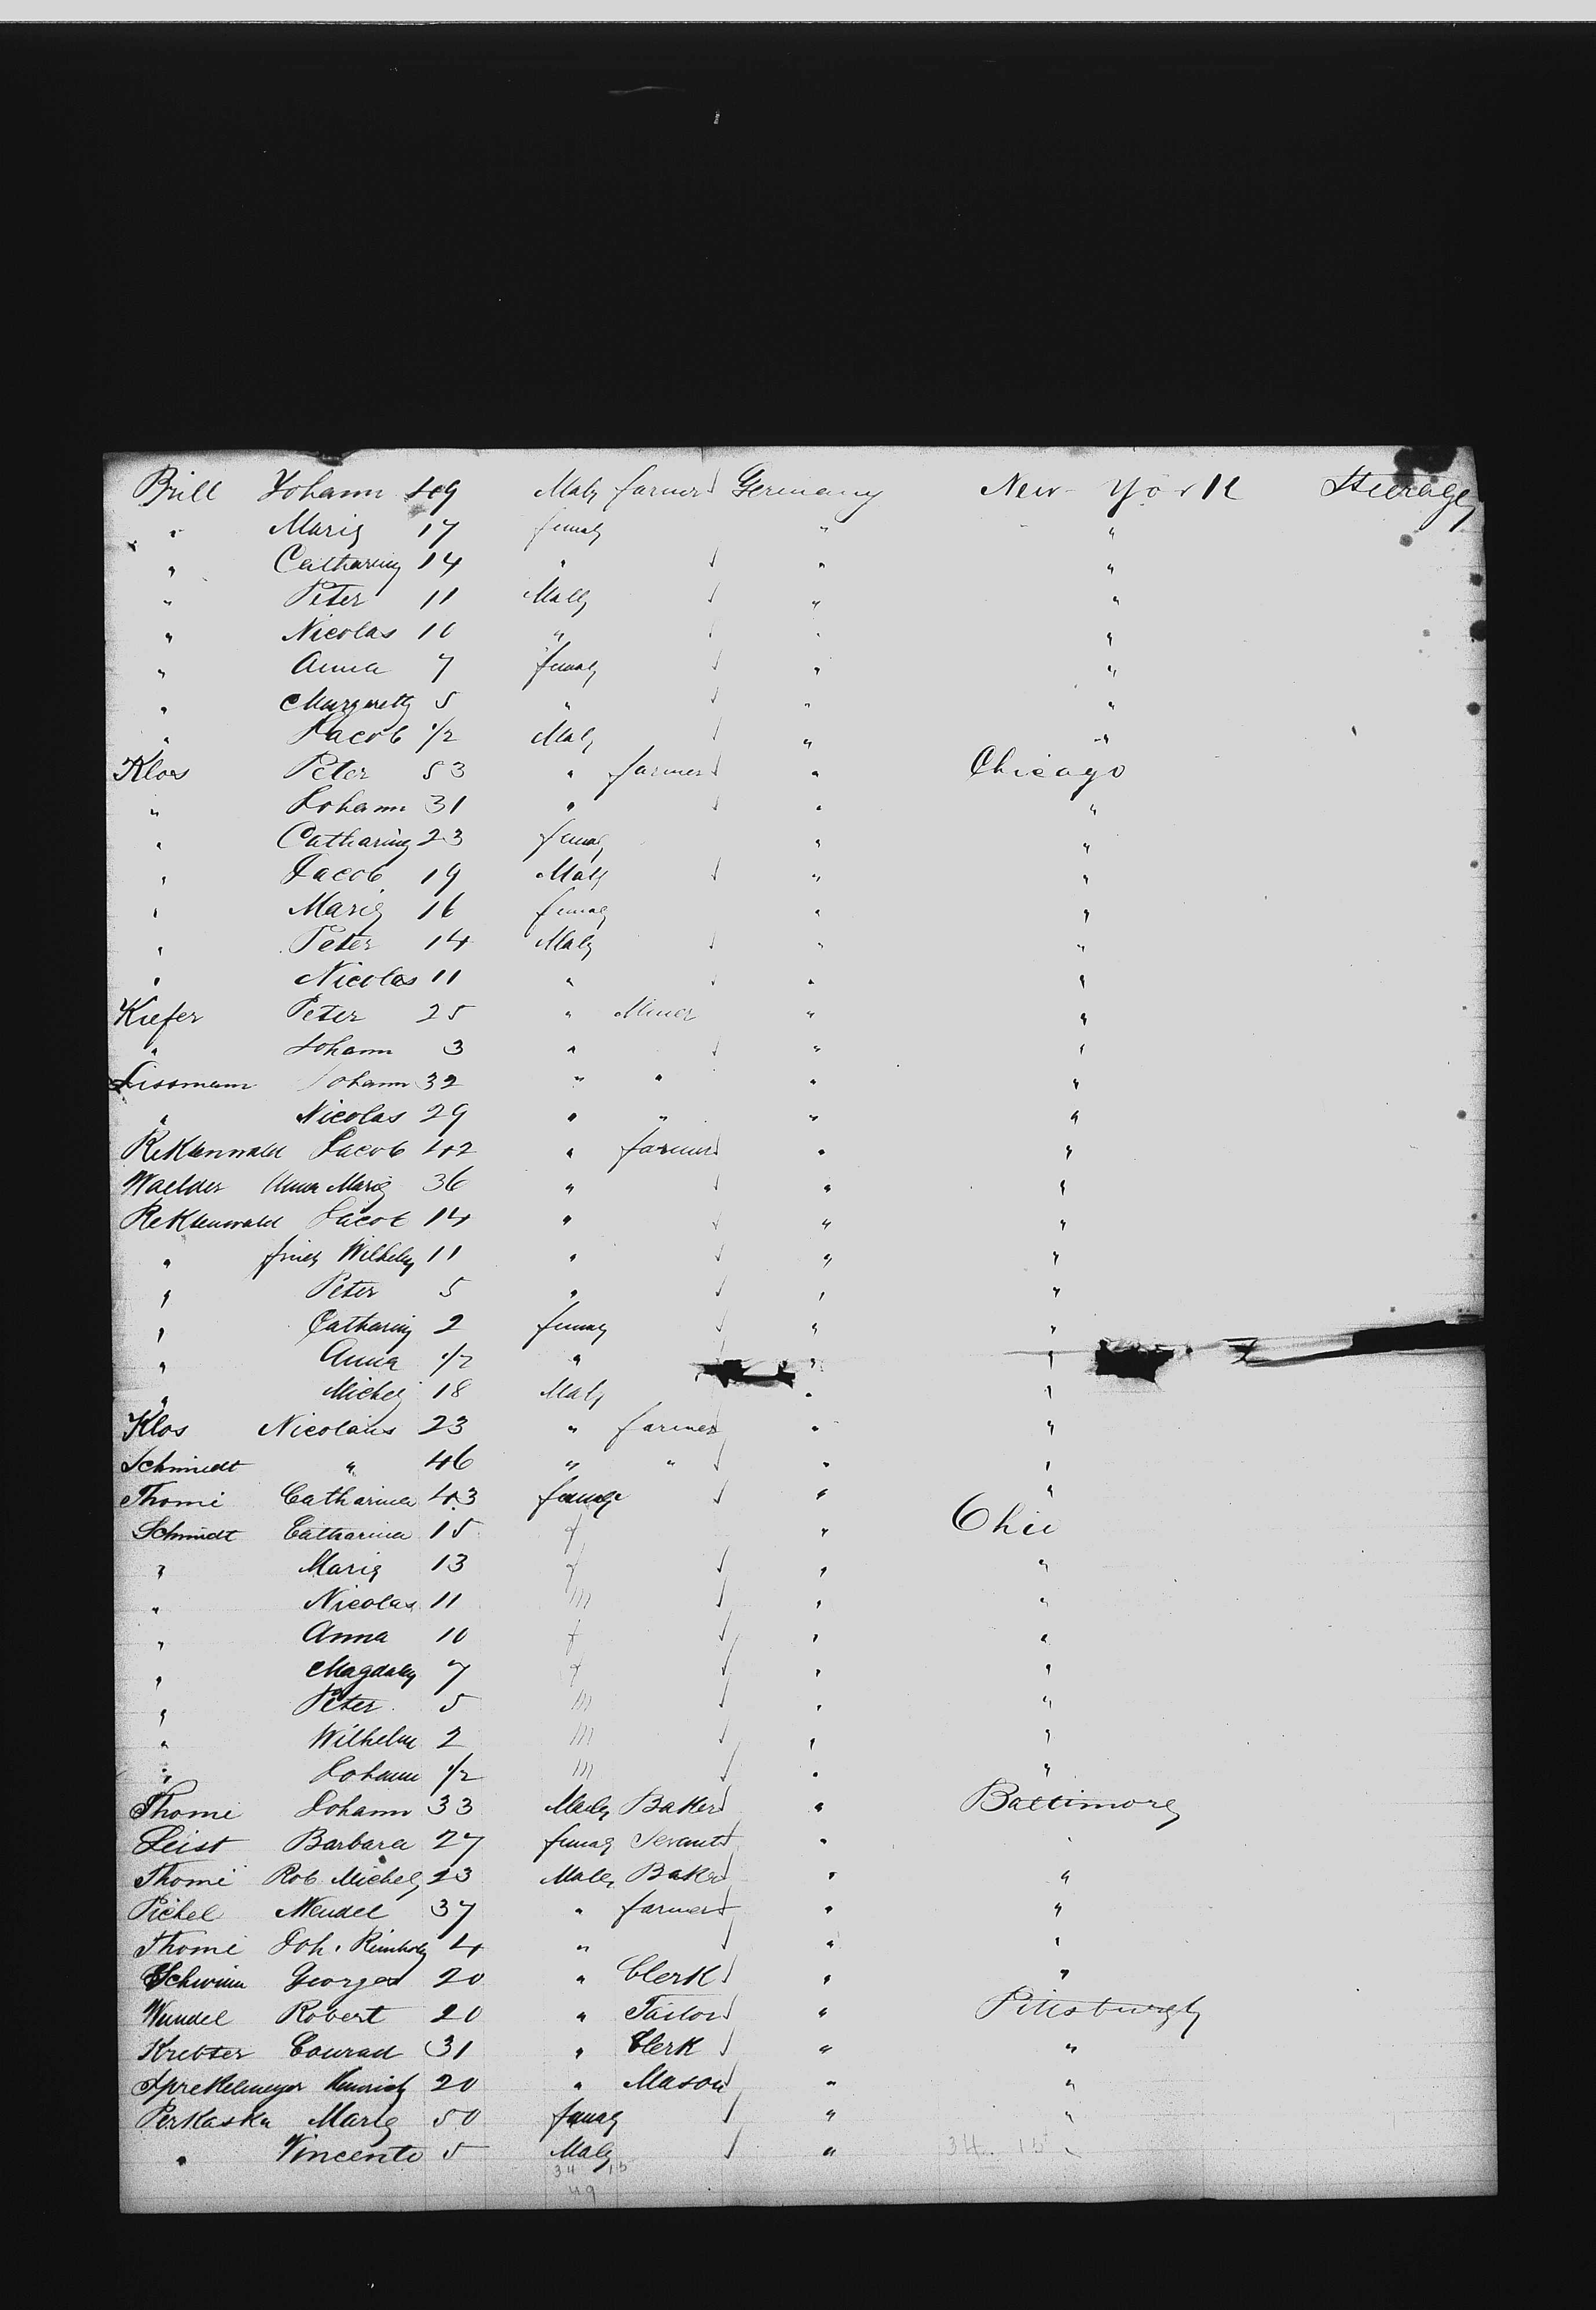 Brill Johann 49 Male farmer Germany New-York Steerage
" Marie 17 female " "
" Catharine 14 " " "
" Peter 11 Male " "
" Nicolas 10 " " "
" Anna 7 female " "
" Margarethe 5 " " "
" Jacob 1/2 Male " "
Klos Peter 53 " farmer " Chicago
" Johann 31 " " "
" Catharine 23 female " "
" Jacob 19 Male " "
" Marie 16 female " "
" Peter 14 Male " "
" Nicolas 11 " " "
Kiefer Peter 25 " Miner " "
" Johann 3 " " "
Lissmann Johann 32 " " " "
" Nicolas 29 " " " "
Jacob 42 " farmer " "
Waelder Anna Marie 36 " " "
Jacob 14 " " "
" Wilhelm 11 " " "
" Peter 5 " " "
" Catharine 2 female " "
" Anna 1/2 " " "
" Michel 18 Male " "
Klos Nicolaus 23 " farmer " "
Schmidt " 46 " " " "
Thomé Catharina 43 female " "
Schmidt Catharina 15 f " Ohio
" Marie 13 f " "
" Nicolas 11 m " "
" Anna 10 f " "
" Magdalen 7 f " "
" Peter 5 m " "
" Wilhelm 2 m " "
" Johann 1/2 m " "
Thomé Johann 33 Male Baker " Baltimore
Leist Barbara 27 female Servant " "
Thomé Rob. Michel 23 Male Baker " "
Pickel Wendel 37 " farmer " "
Thomé Joh. 4 " " "
Schwinn George 20 " Clerk " "
Wundel Robert 20 " Tailor " Pittsburgh
Conrad 31 " Clerk " "
Sprekelmeyer Heinrich 20 " Mason " "
Perklaska Marie 50 female " "
" Vincente 5 Male " 34 15 "
34 15
49